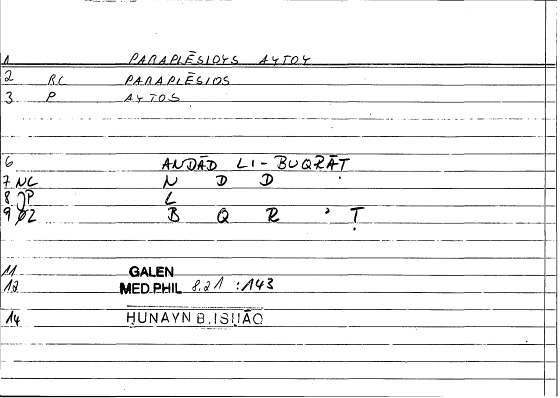 1 PARAPLĒSIOYS AYTOY
2 RC PARAPLĒSIOS
3 P AYTOS
6 ANDĀD LI-BUQRĀṬ
7 NC N D D
8 JP L
9 B Q R ʾ Ṭ
11 GALEN
12 MED.PHIL 8.21 :143
14 ḤUNAYN B.ISḤĀQ